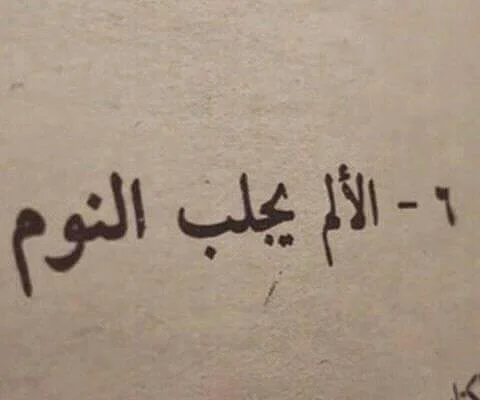 ٦ - الألم يجلب النوم